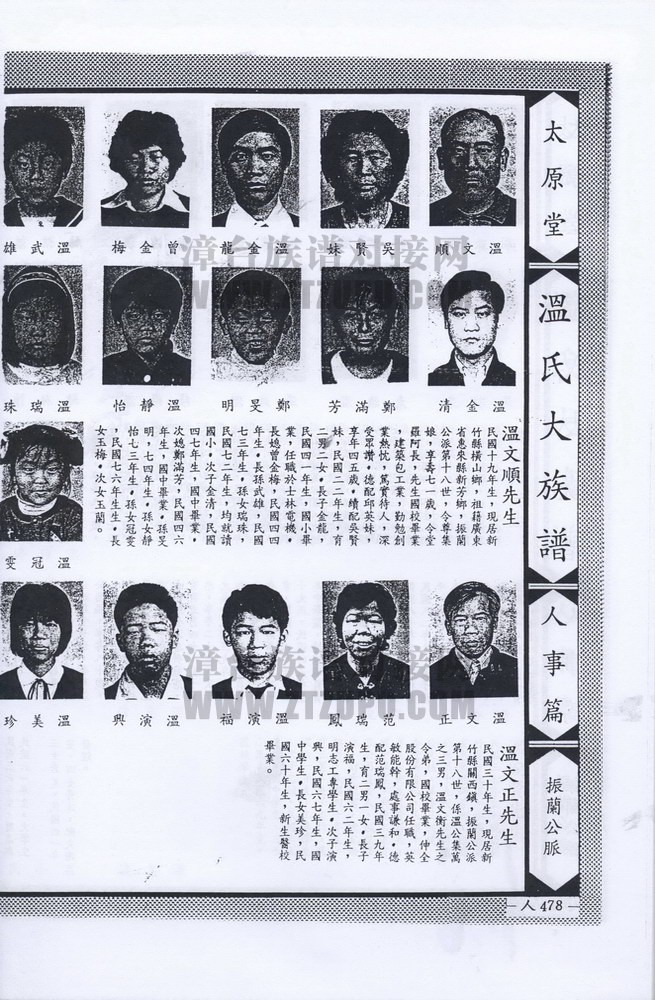 太原堂
溫氏大族譜
人事篇
振蘭公脈
人 478
順文溫
妹賢吳
龍金溫
梅金曾
雄武溫
清金溫
芳滿鄭
明旻鄭
怡靜溫
珠瑞溫
雯冠溫
溫文順先生
民國十九年生，現居新
竹縣橫山鄉，祖籍廣東
省惠來縣新芳鄉，振蘭
公派第十八世，令尊集
娘，享壽七一歲，令堂
羅阿長，先生國校畢業
，建築包工業，勤勉創
業熱忱，篤實待人，深
受眾讚。德配邱英妹，
享年四五歲。續配吳賢
妹，民國二二年生，育
二男二女。長子金龍，
民國四一年生，國小畢
業，任職於士林電機。
長媳曾金梅，民國四四
年生。長孫武雄，民國
七三年生。孫女瑞珠，
民國七二年生，均就讀
國小。次子金清，民國
四七年生，國中畢業。
次媳鄭滿芳，民國四六
年生，國中畢業。孫旻
明，七四年生。孫女靜
怡七三年生。孫女冠雯
，民國七六年生。長
女玉梅。次女玉蘭。
正文溫
鳳瑞范
福演溫
興演溫
珍美溫
溫文正先生
民國三十年生，現居新
竹縣關西鎮，振蘭公派
第十八世，係溫公集萬
之三男，溫文衡先生之
令弟，國校畢業，仲全
股份有限公司任職，英
敏能幹，處事謙和。德
配范瑞鳳，民國三九年
生，育二男一女。長子
演福，民國六二年生，
明志工專學生。次子演
興，民國六七年生，國
中學生。長女美珍，民
國六十年生，新生醫校
畢業。
漳台族谱对接网
WWW.ZTZUPU.COM
漳台族谱对接网
WWW.ZTZUPU.COM